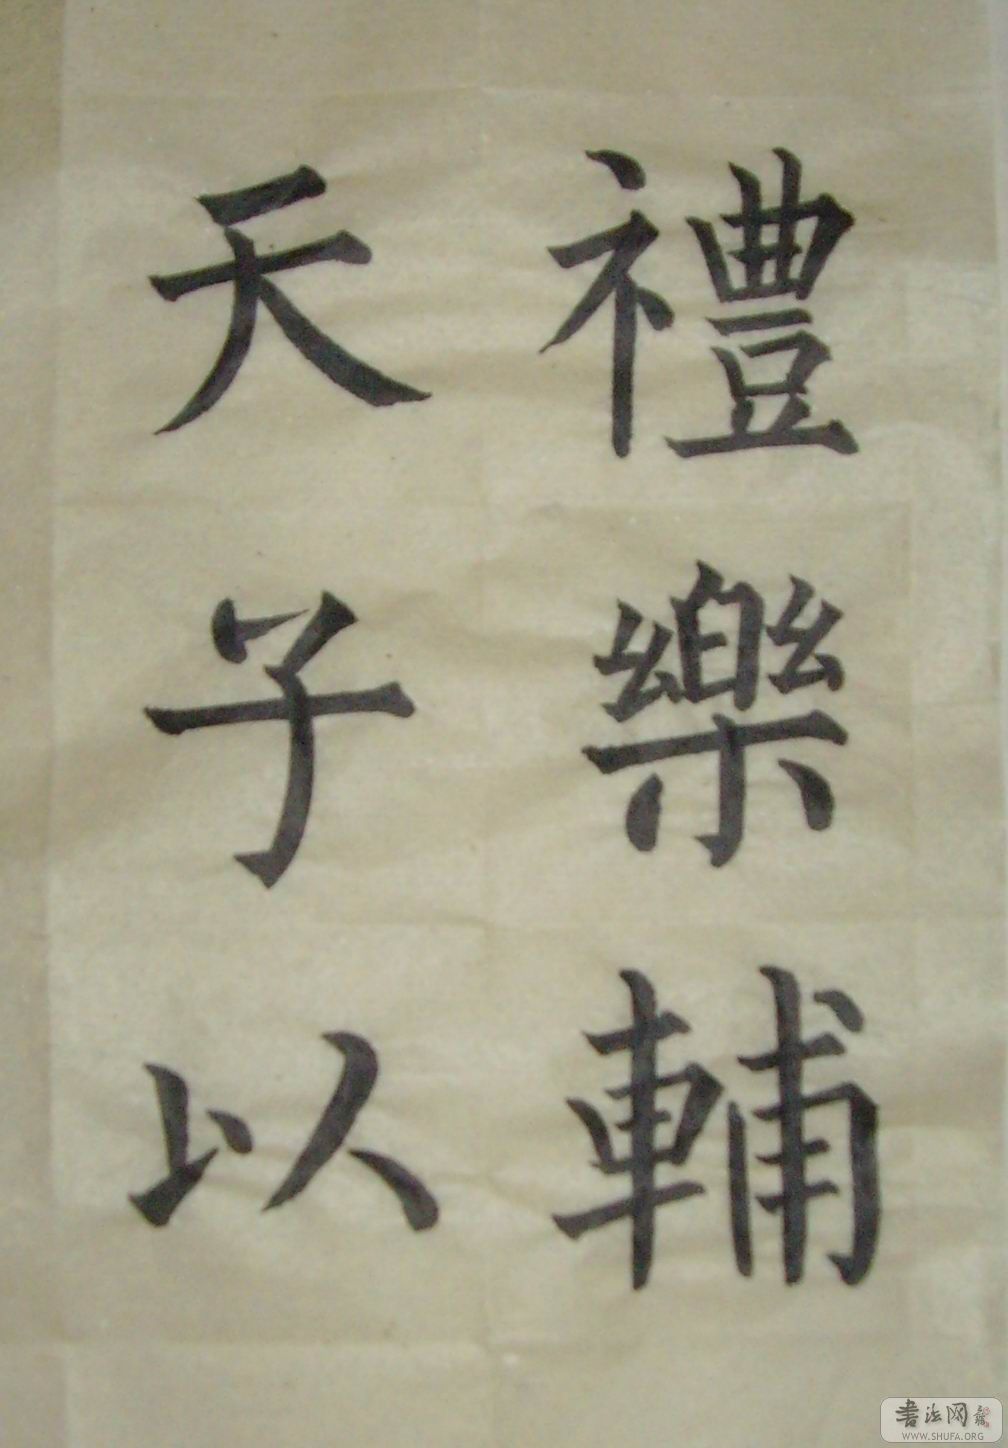 禮樂輔
天子以
书法网
WWW.SHUFA.ORG